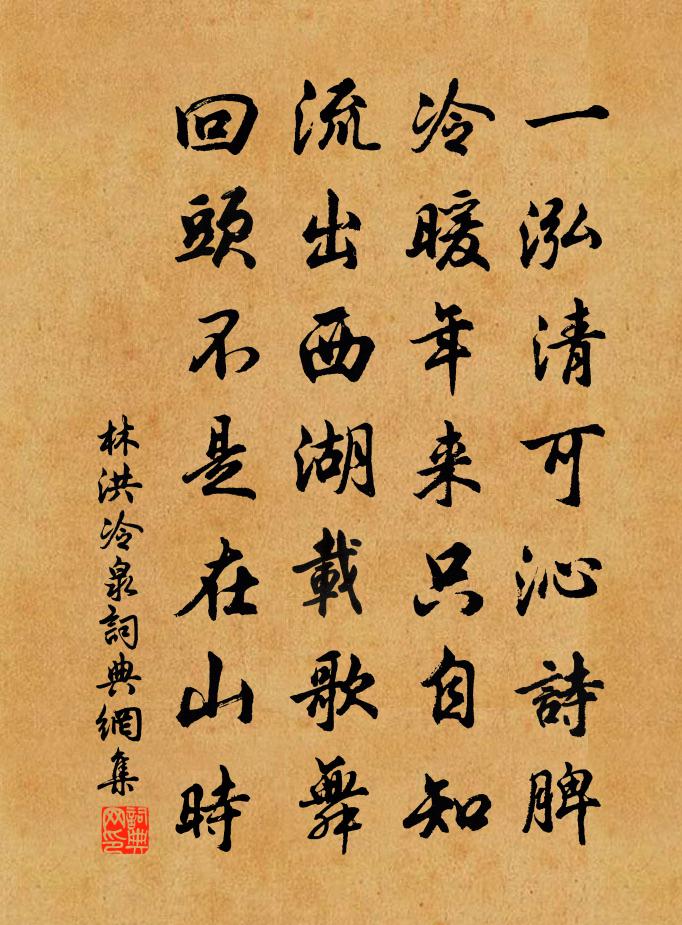 一泓清可沁詩脾
冷暖年来只自知
流出西湖載歌舞
回頭不是在山時
林洪冷泉詞典網集
詞典网印